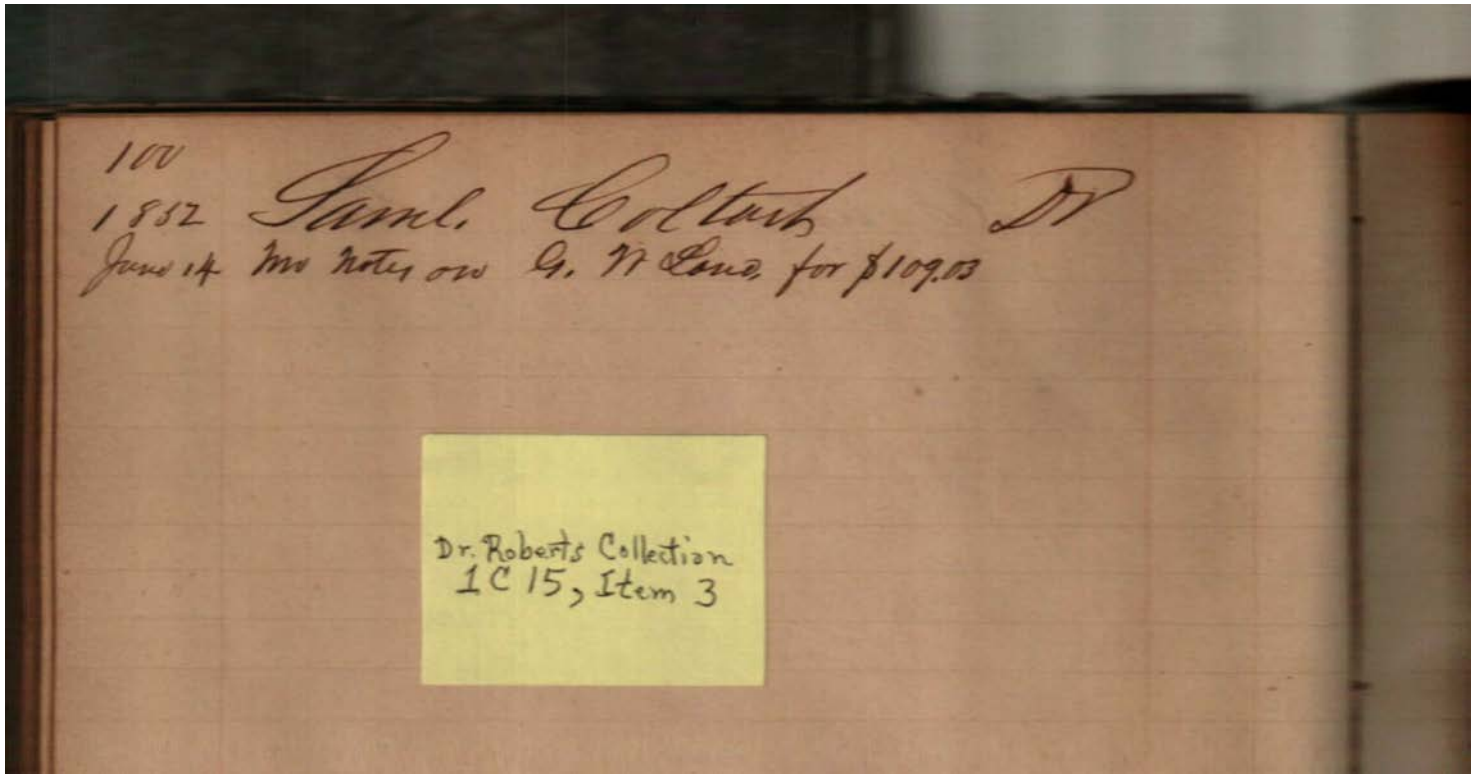 100
1852 Saml. Coltart Dr
June 14 Notes on G. W Lane, for $109.03
Dr. Roberts Collection
1C 15, Item 3